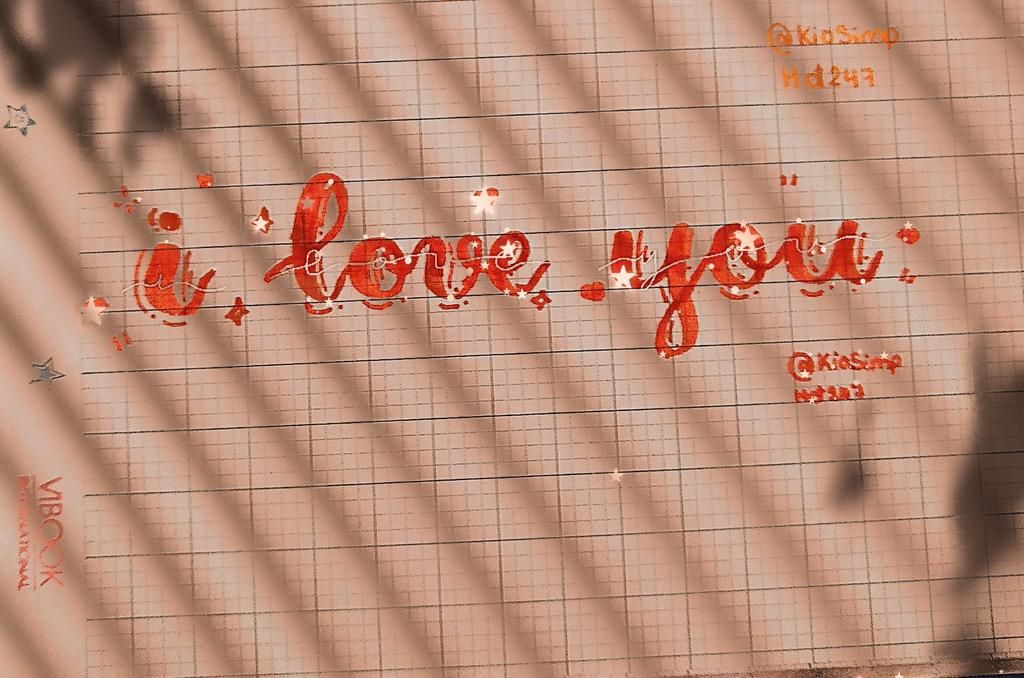 @KioSimp
Hd247
i love you
@KioSimp
Hd247
VIBOOK
INTERNATIONAL